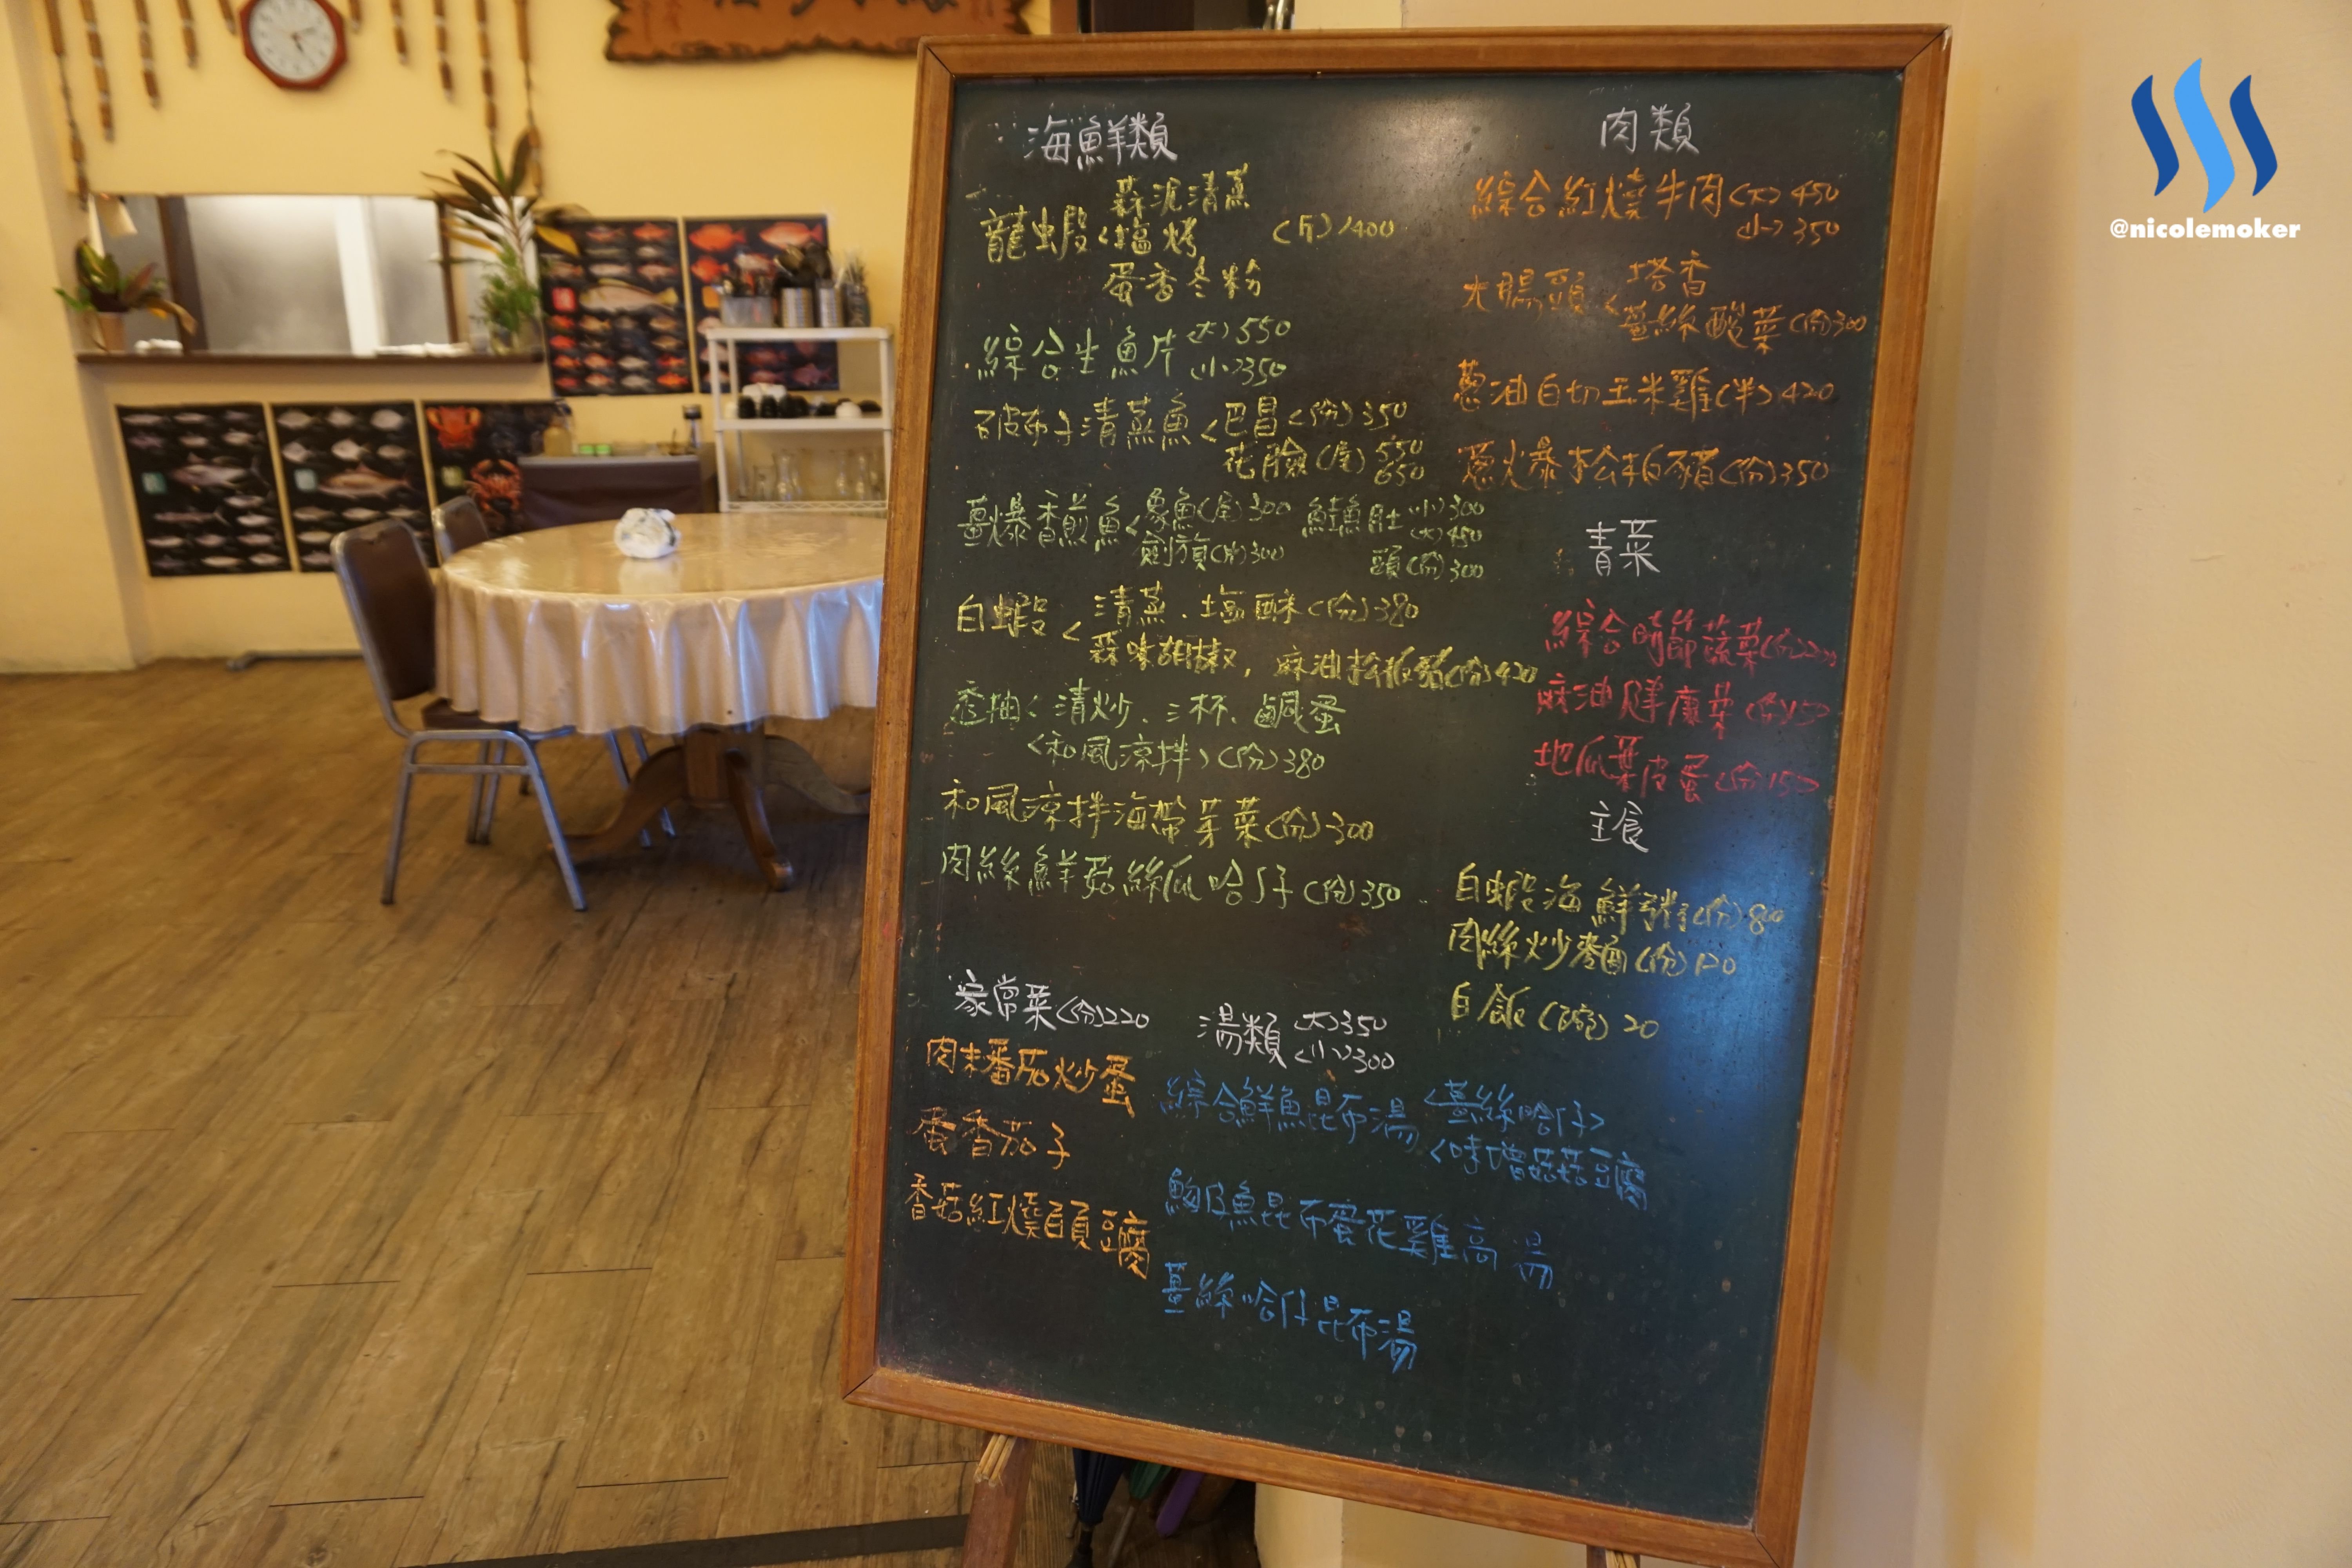 海鮮類
蒜泥清蒸
龍蝦<塩烤 (斤)1400
蛋香冬粉
綜合生魚片 (大)550
(小)350
破布子清蒸魚<巴昌(份)350
花臉(尾)550
650
薑爆香煎魚<象魚(尾)300 鮭魚肚(小)300
(大)450
劍旗(片)300 頭(份)300
白蝦<清蒸、塩酥(份)380
蒜味胡椒,麻油松板豬(份)420
透抽<清炒、三杯、鹹蛋
<和風涼拌>(份)380
和風涼拌海帶芽菜(份)300
肉絲鮮菇絲瓜哈仔(份)350
肉類
綜合紅燒牛肉(大)450
(小)350
大腸頭<塔香
薑絲酸菜(份)300
蔥油白切玉米雞(半)420
蔥爆松板豬(份)350
青菜
綜合時節蔬菜(份)
麻油健康菜(份)150
地瓜葉皮蛋(份)150
主食
白蝦海鮮粥(份)800
肉絲炒麵(份)120
白飯(碗)20
家常菜(份)220
肉末番茄炒蛋
蛋香茄子
香菇紅燒豆腐
湯類 (大)350
(小)300
綜合鮮魚昆布湯<薑絲哈仔>
<味噌菇菇豆腐
魩仔魚昆布蛋花雞高湯
薑絲哈仔昆布湯
@nicolemoker